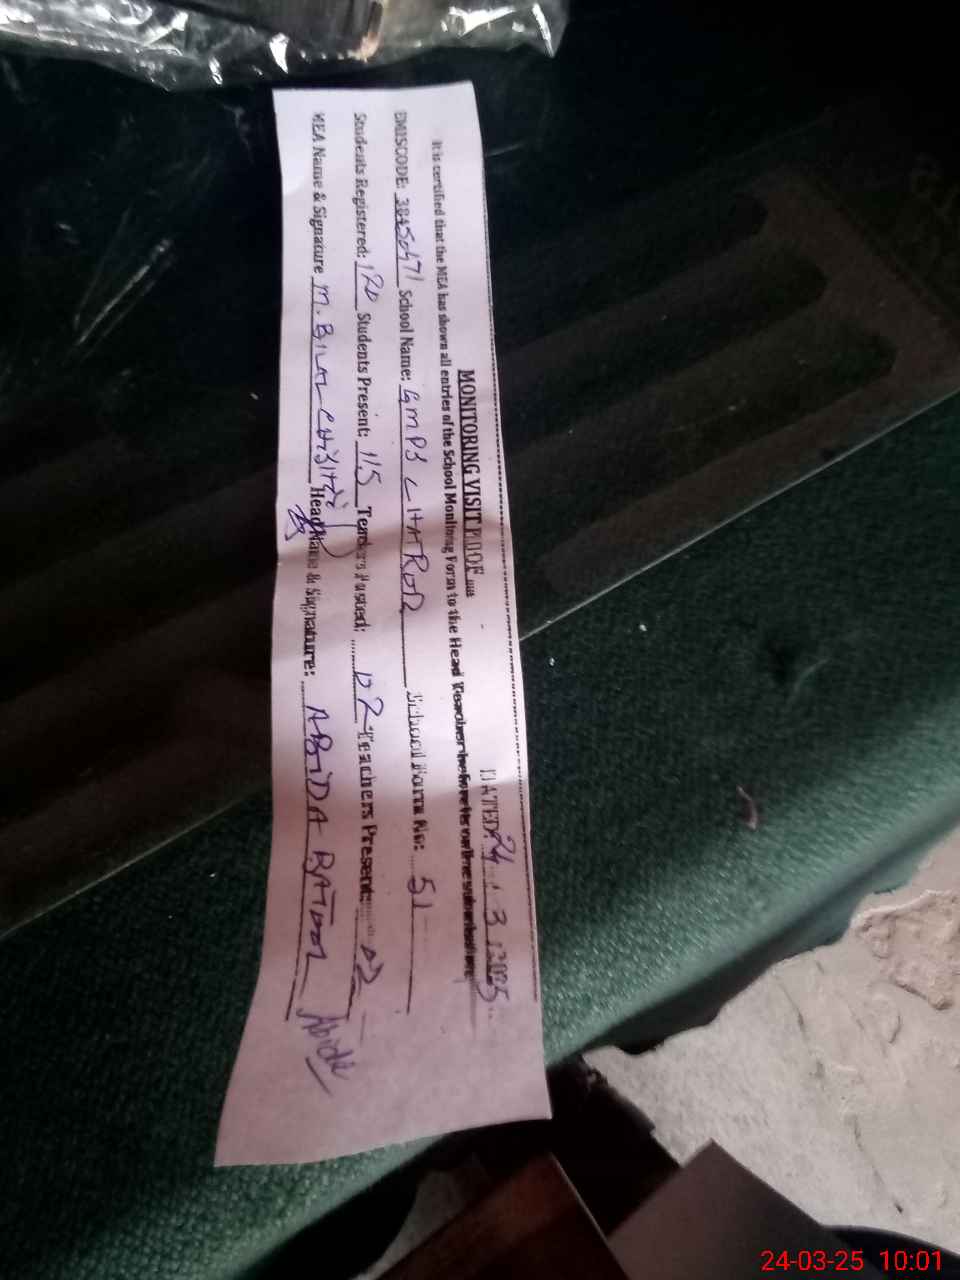 MONITORING VISIT PROOF
DATED: 24 / 3 /2025
It is certified that the MEA has shown all entries of the School Monitoring Form to the Head Teacher before its online submission.
EMISCODE: School Name: GMPS CHATROR School Form No: 51
Students Registered: 120 Students Present: 115 Teachers Posted: 02 Teachers Present: 02
MEA Name & Signature M. BILAL CHISHTI Head Name & Signature: ABIDA BATOOL Abida
24-03-25 10:01